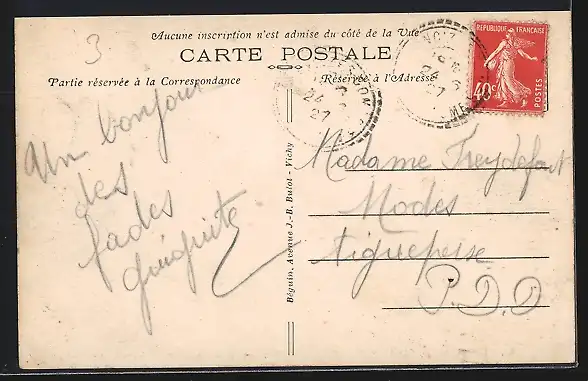 3
Aucune inscription n'est admise du côté de la Vue
CARTE POSTALE
Partie réservée à la Correspondance
Réservée à l'Adresse
RÉPUBLIQUE FRANÇAISE
40c
POSTES
27
27
Un bonjour
des
Madame
Modes
Aigueperse
P.D.D
Béguin, Avenue J.-B. Bulot - Vichy